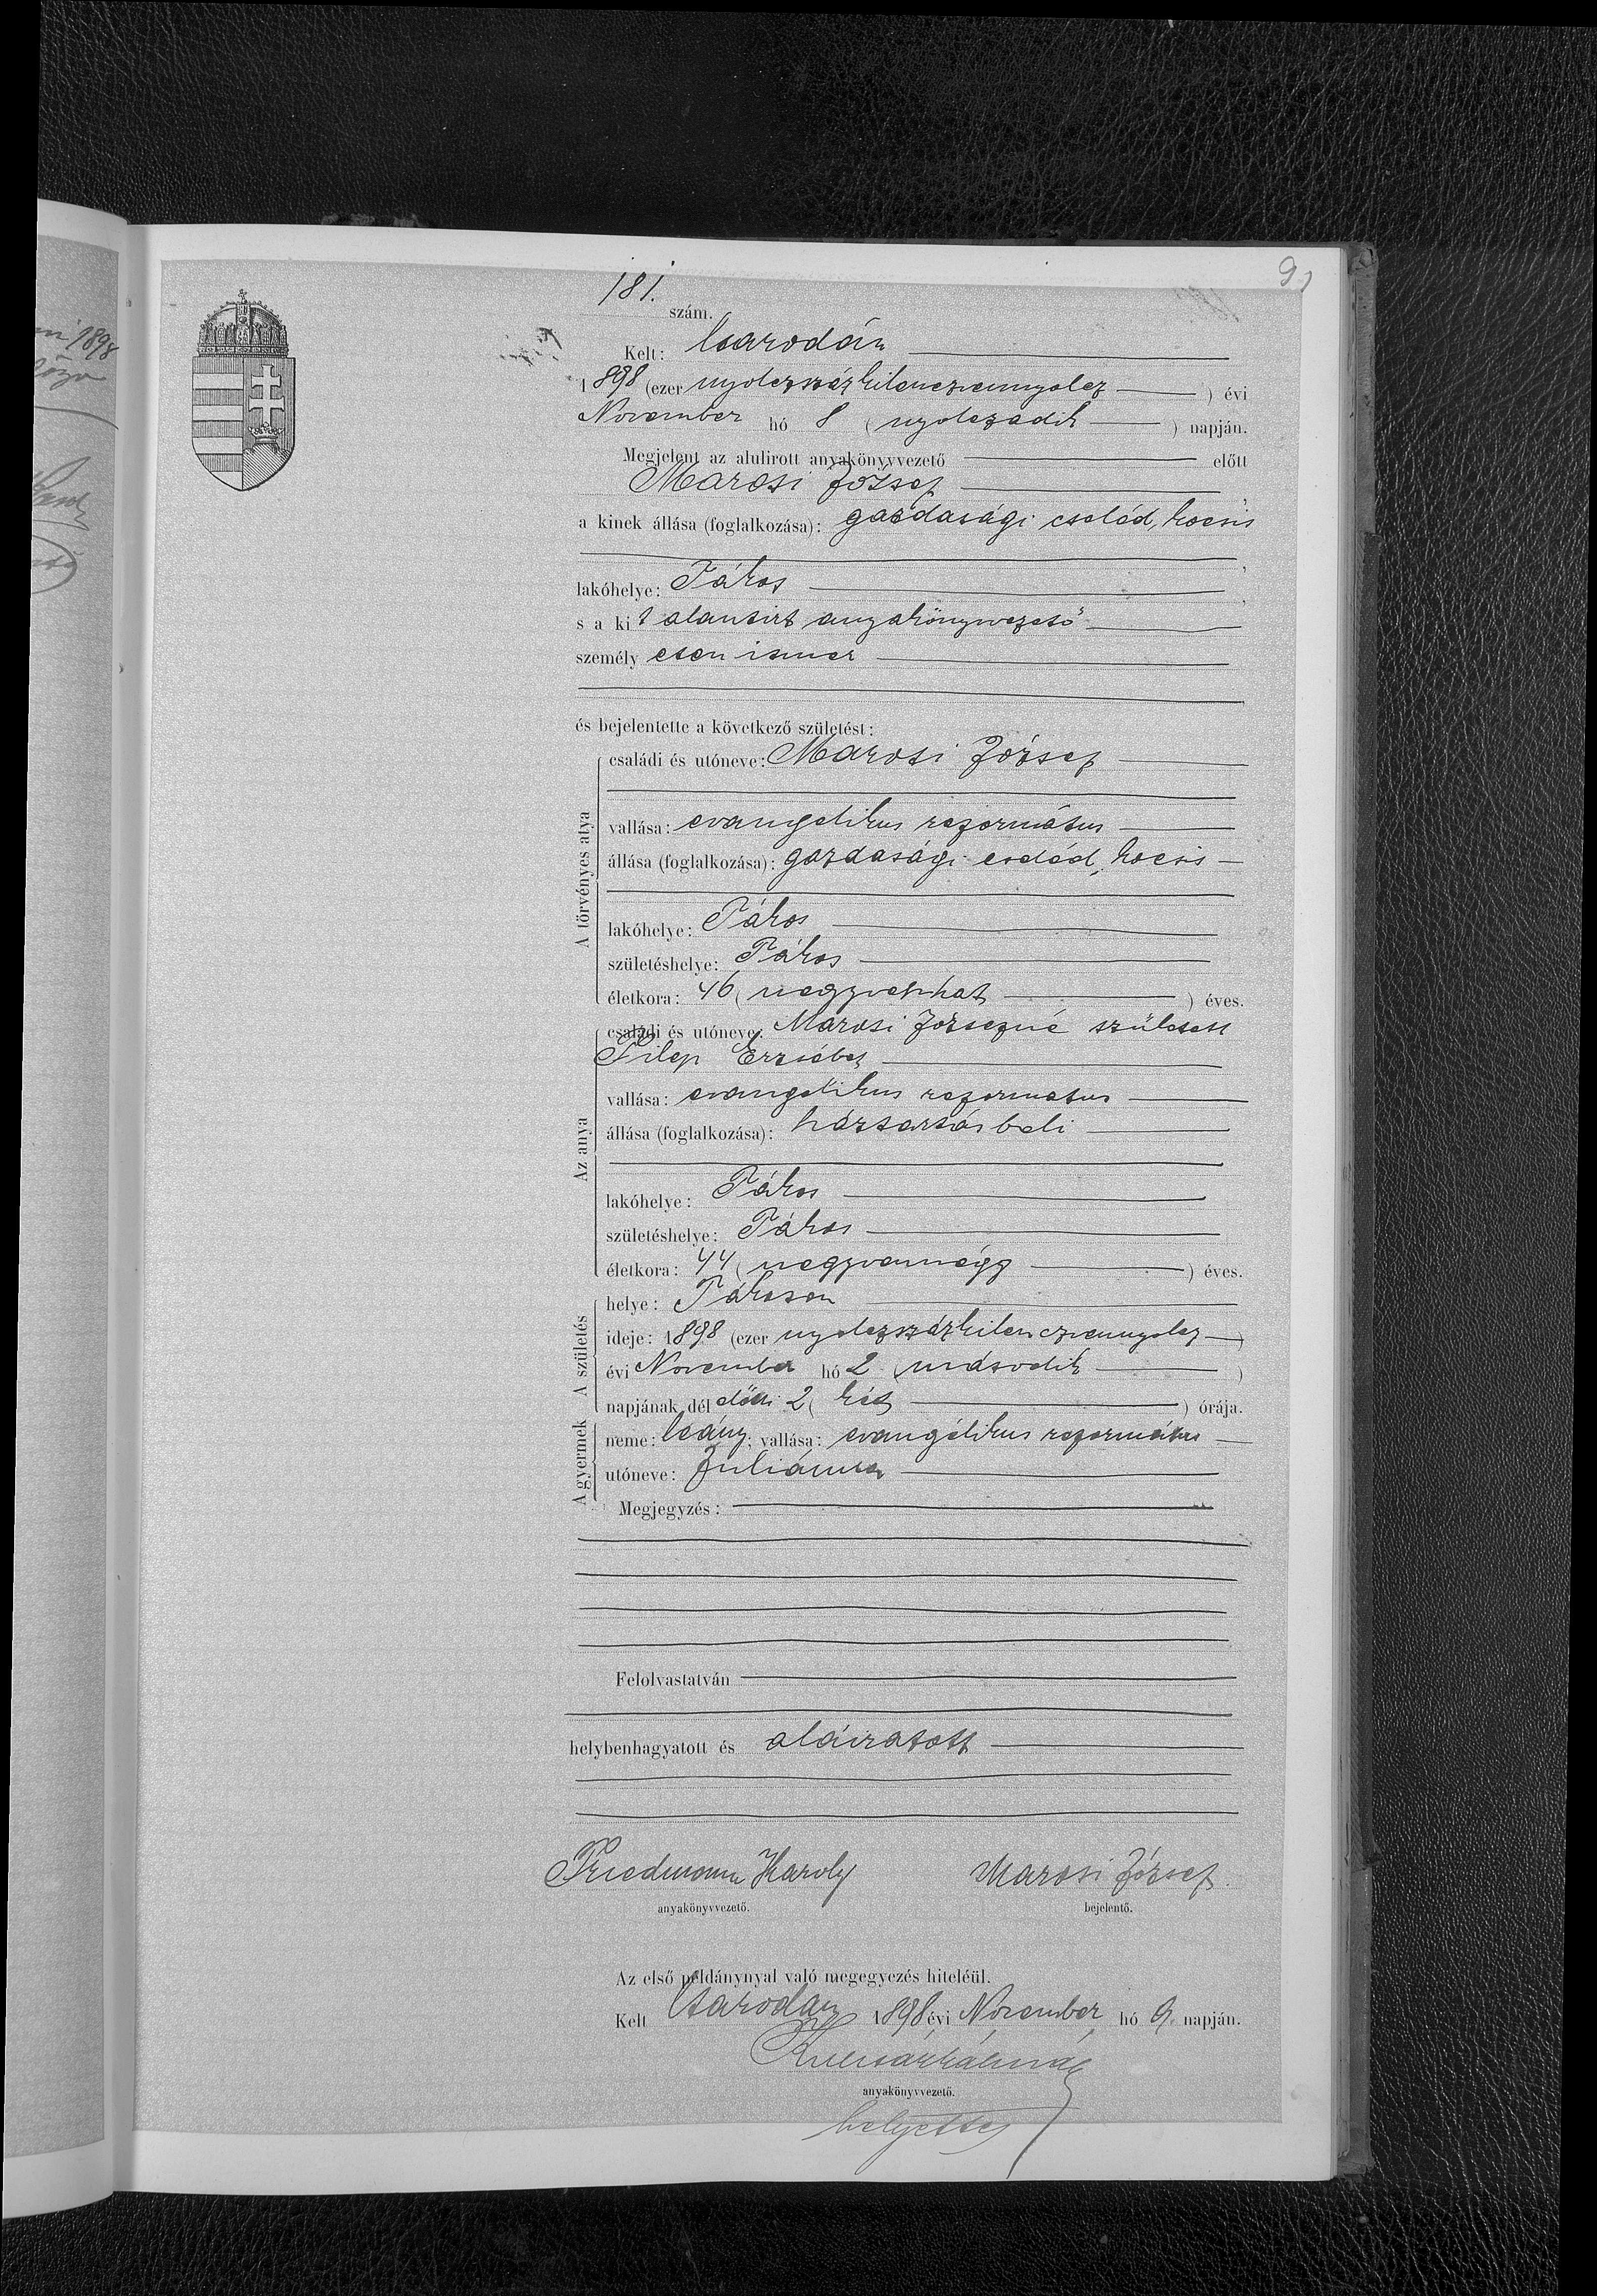 181.
szám.
9
Kelt: Csarodán
1898 (ezer nyolczszázkilenczvennyolcz) évi
November hó 8 (nyolczadik) napján.
Megjelent az alulirott anyakönyvvezető előtt
Marosi József
a kinek állása (foglalkozása): gazdasági cseléd, kocsis
lakóhelye: Tákos
s a ki t alantirt anyakönyvvezető
személy esen ismer
és bejelentette a következő születést:
A törvényes atya
családi és utóneve: Marosi József
vallása: evangelikus református
állása (foglalkozása): gazdasági cseléd, kocsis
lakóhelye: Tákos
születéshelye: Tákos
életkora: 46 (negyvenhat) éves.
Az anya
családi és utóneve: Marosi Józsefné született
Filep Erzsébet
vallása: evangelikus reformatus
állása (foglalkozása): háztartásbeli
lakóhelye: Tákos
születéshelye: Tákos
életkora: 44 (negyvennégy) éves.
A születés
helye: Tákoson
ideje: 1898 (ezer nyolczszázkilenczvennyolcz)
évi November hó 2 (második)
napjának dél előtti 2 (két) órája.
A gyermek
neme: leány; vallása: evangélikus református
utóneve: Juliánna
Megjegyzés:
Felolvastatván
helybenhagyatott és aláiratott
Friedmann Karoly Marosi József.
anyakönyvvezető. bejelentő.
Az első példánynyal való megegyezés hiteléül.
Kelt Csarodán 1898 évi November hó 9 napján.
anyakönyvvezető.
helyettes